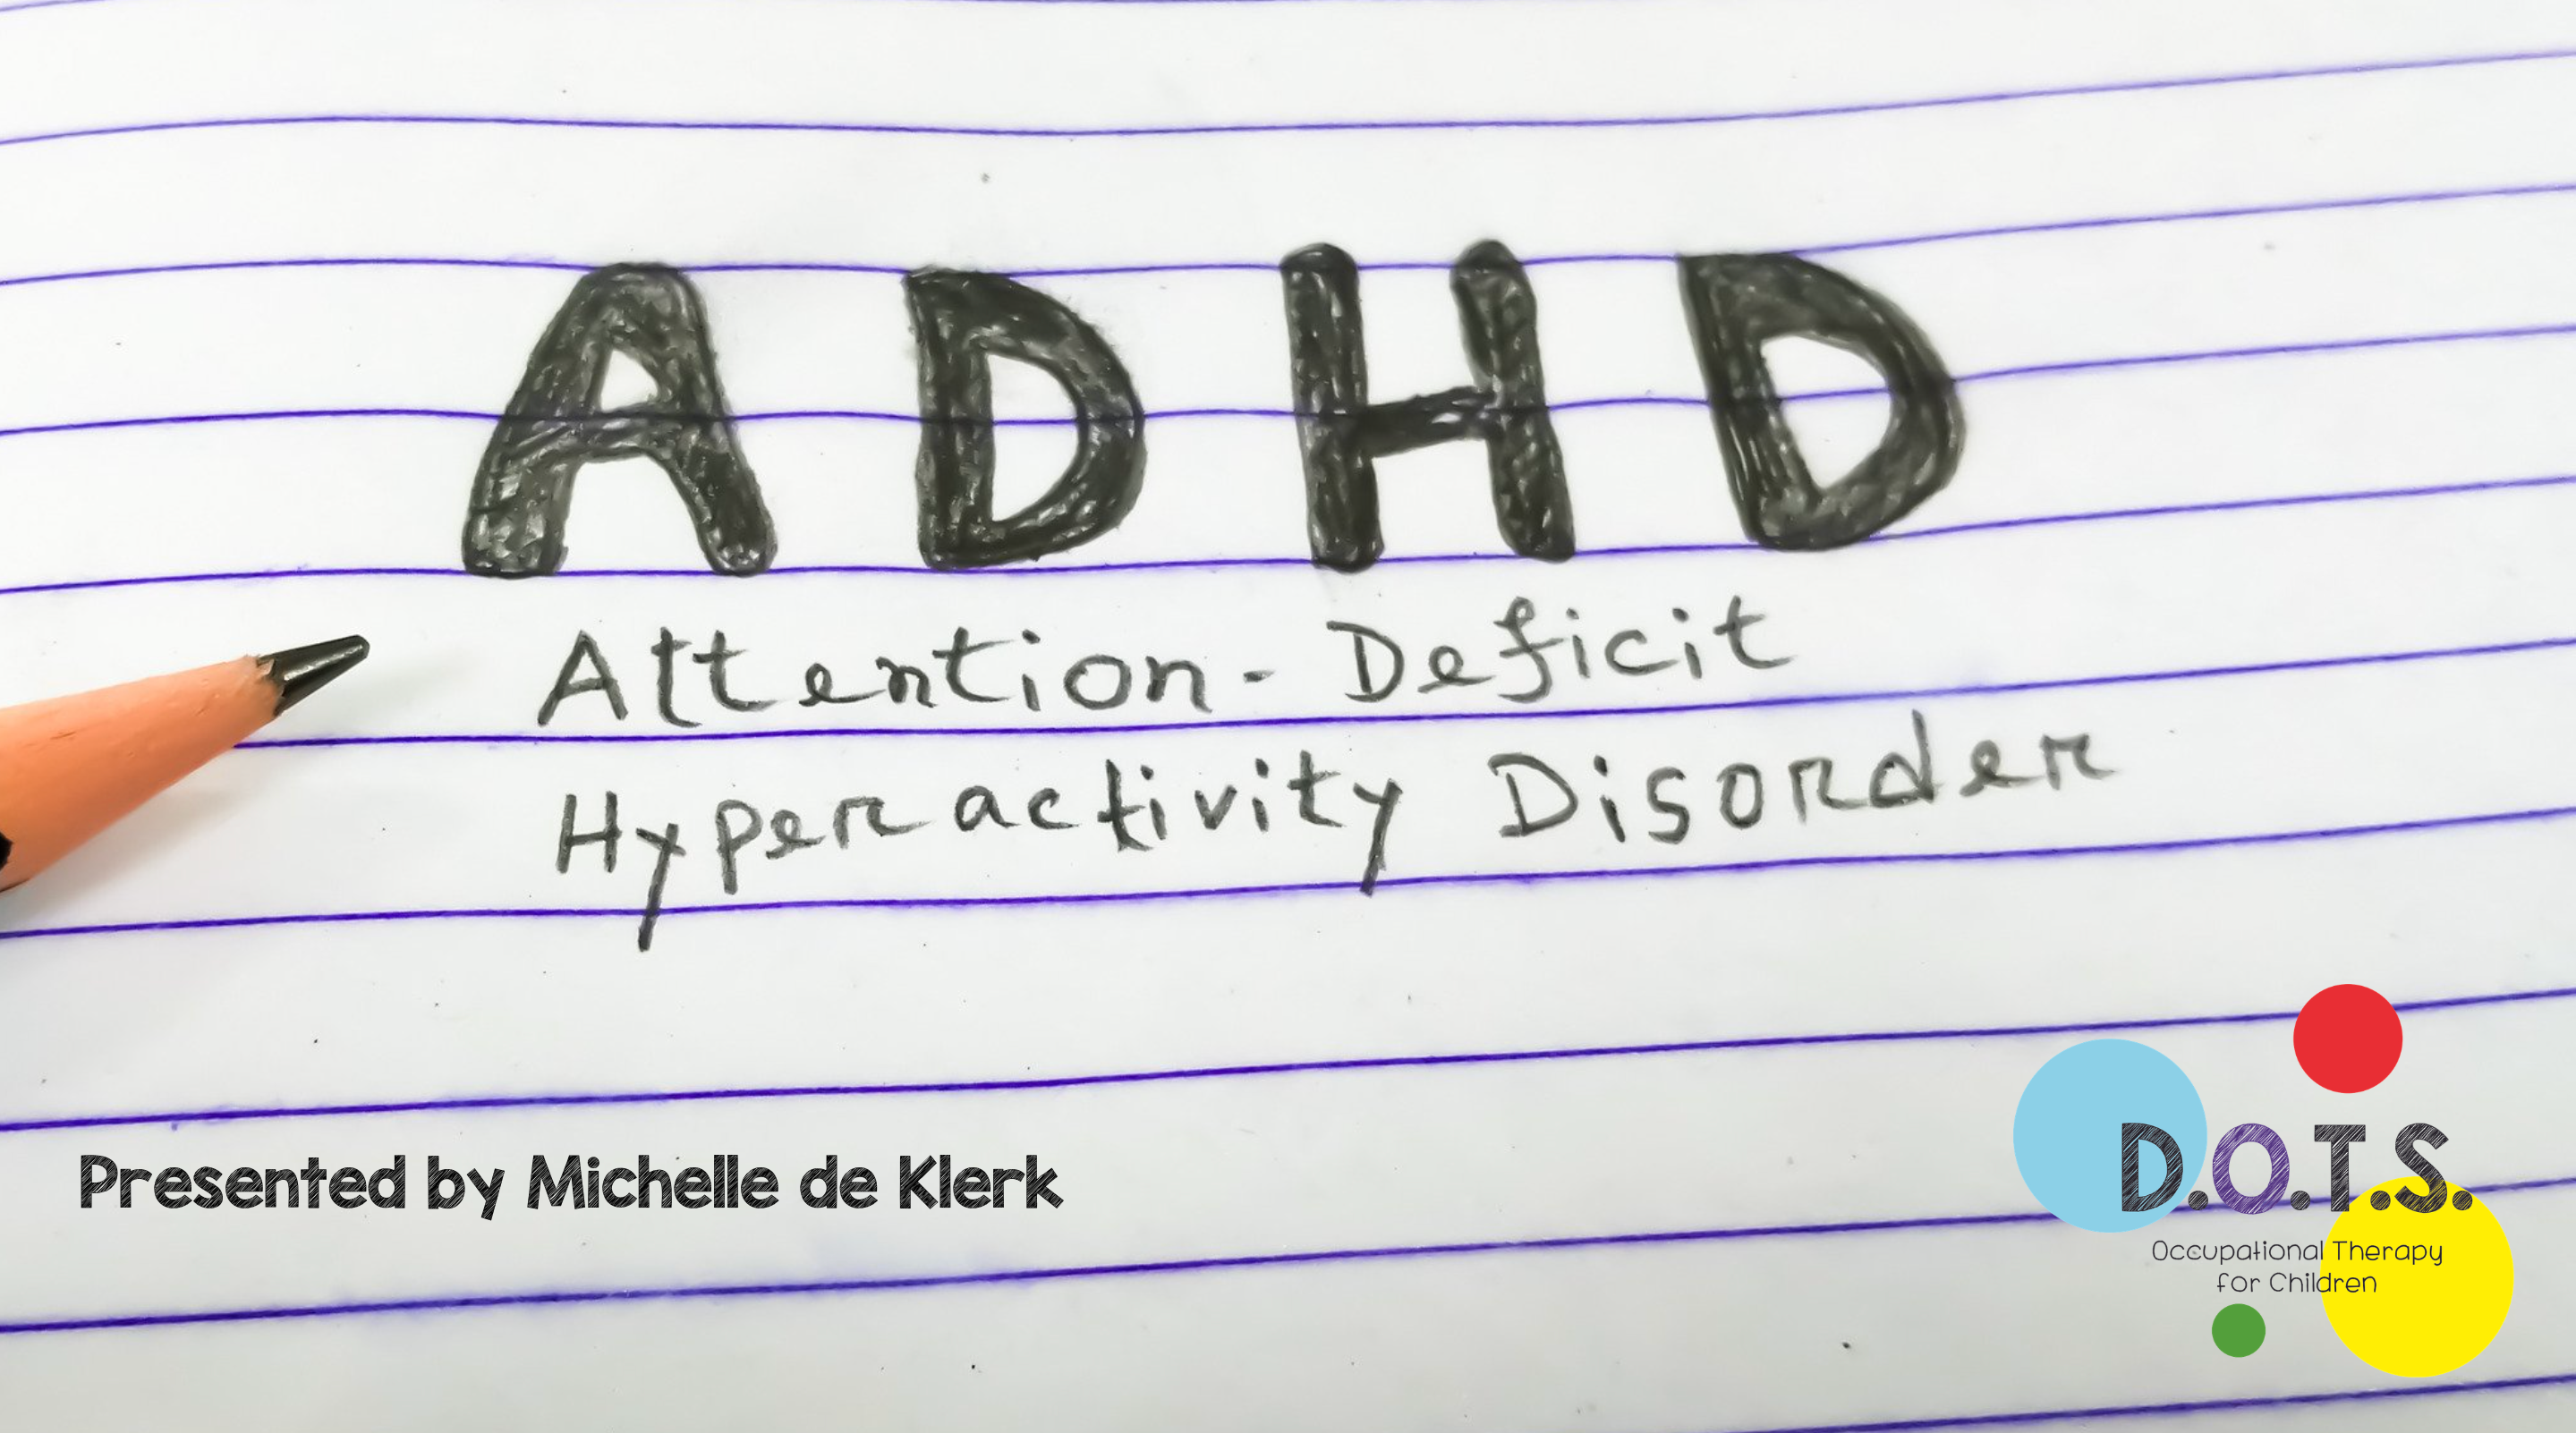 ADHD
Attention-Deficit
Hyperactivity Disorder
Presented by Michelle de Klerk
D.O.T.S.
Occupational Therapy
for Children